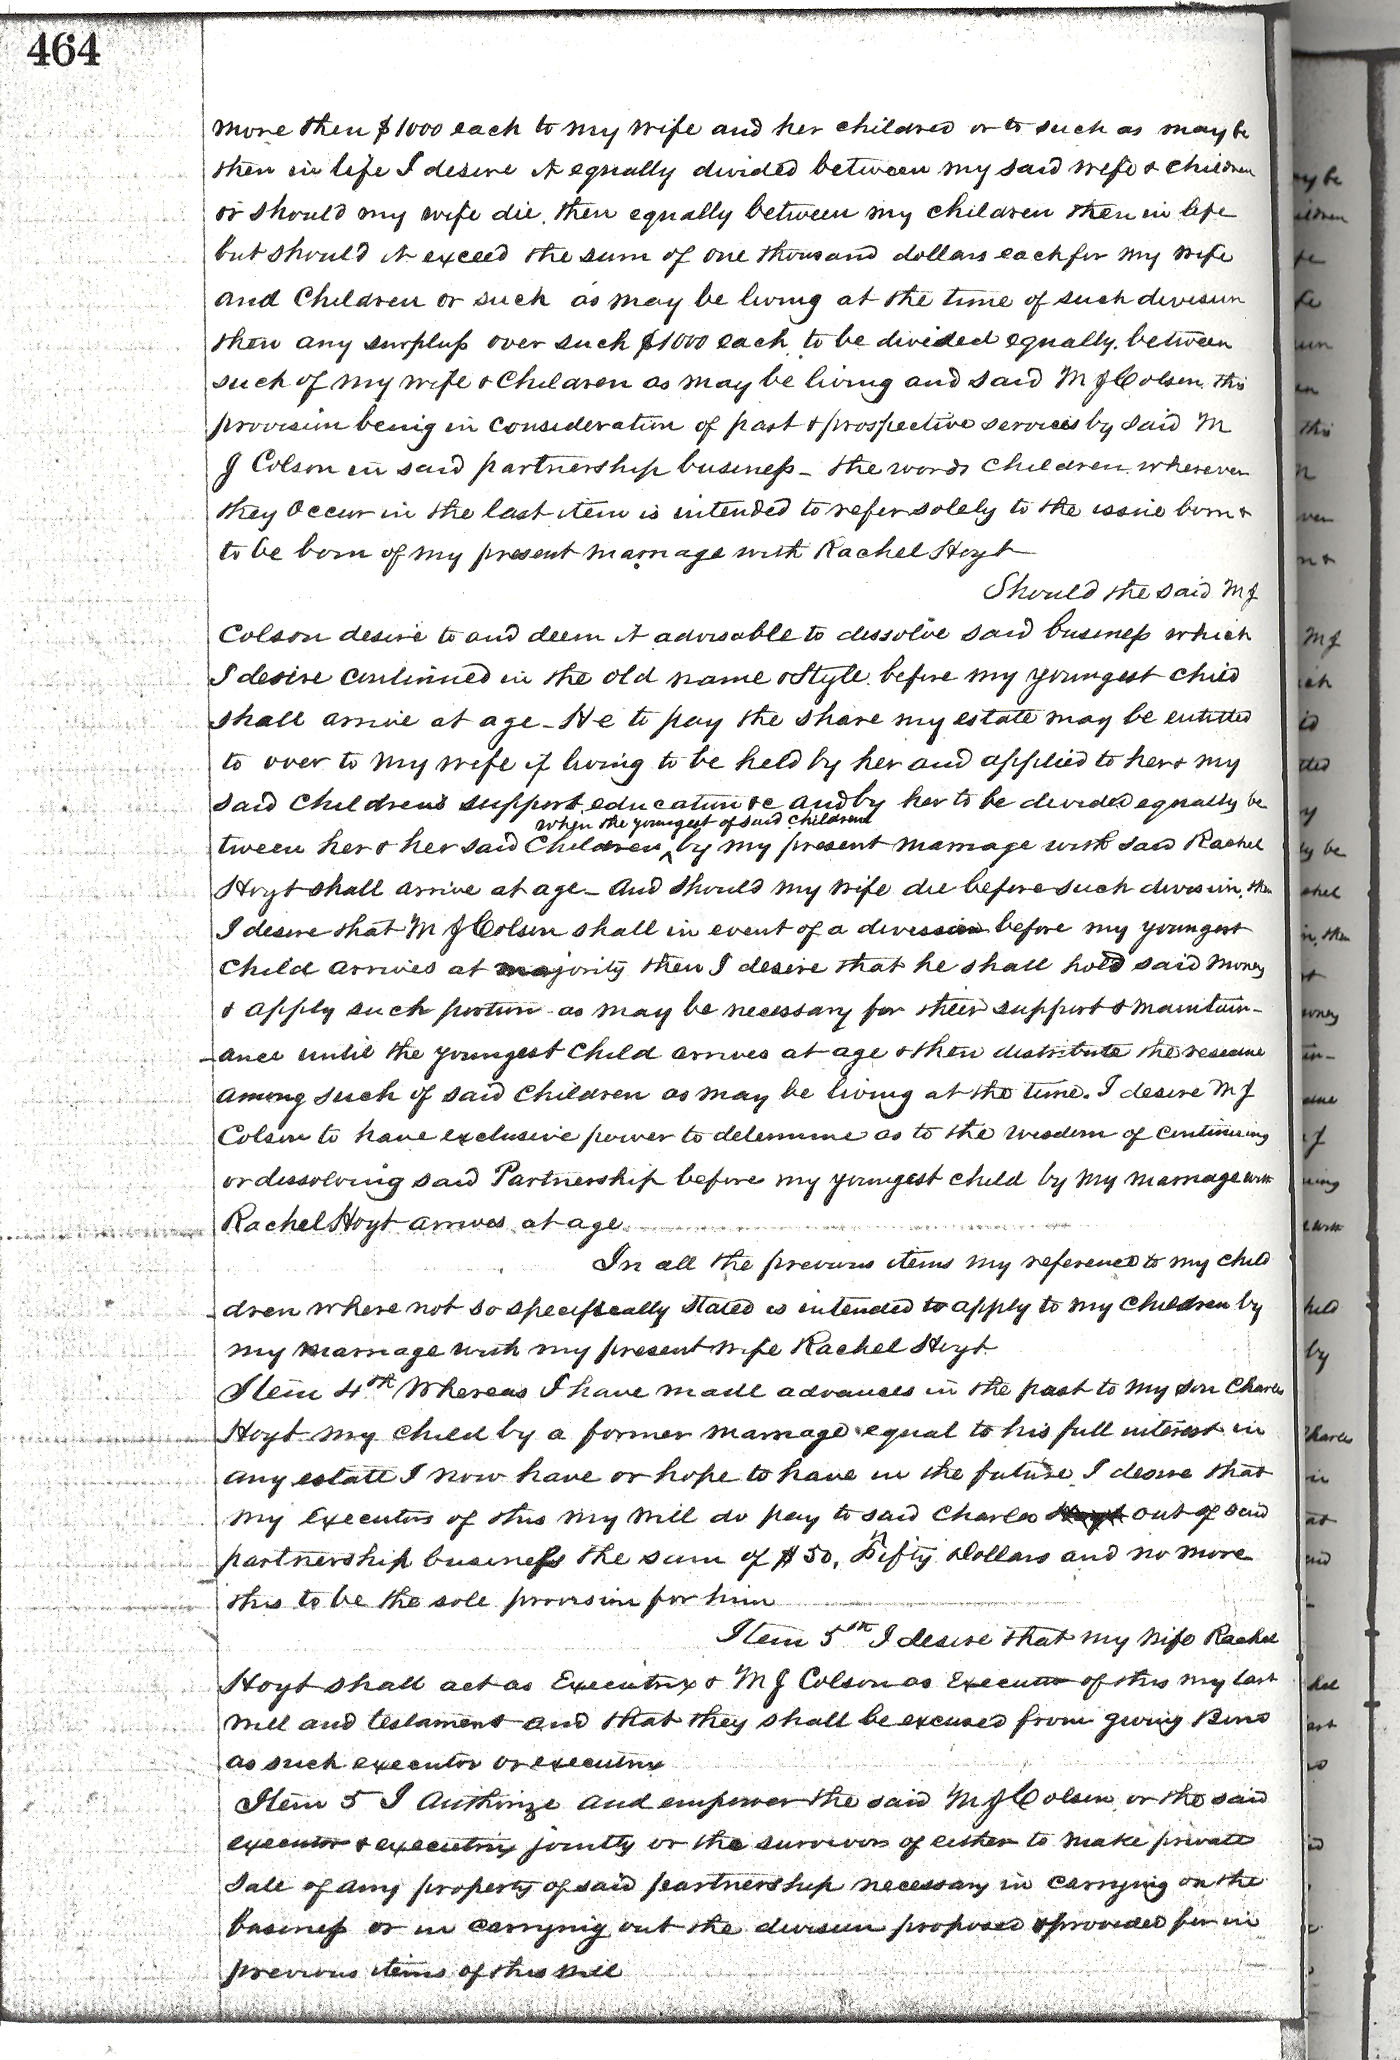 464
more then $1000 each to my wife and her children or to such as may be
then in life I desire it equally divided between my said wife & children
or should my wife die, then equally between my children then in life
but should it exceed the sum of one thousand dollars each for my wife
and Children or such as may be living at the time of such division
then any surpluss over such $1000 each to be divided equally between
such of my wife & Children as may be living and said M J Colson this
provision being in consideration of past & prospective services by said M
J Colson in said partnership business – the words children wherever
they occur in the last item is intended to refer solely to the issue born &
to be born of my present marriage with Rachel Hoyt
Should the said M J
Colson desire to and deem it advisable to dissolve said business which
I desire continued in the old name & Style before my youngest child
shall arrive at age – He to pay the share my estate may be entitled
to over to my wife if living to be held by her and applied to her & my
said children's support education &c and by her to be divided equally be
when the youngest of said children
tween her & her said Children by my present marriage with said Rachel
Hoyt shall arrive at age – and should my wife die before such division, then
I desire that M J Colson shall in event of a division before my youngest
child arrives at majority then I desire that he shall hold said money
& apply such portion as may be necessary for their support & maintain-
-ance until the youngest child arrives at age & then distribute the residue
among such of said children as may be living at the time. I desire M J
Colson to have exclusive power to determine as to the wisdom of continuing
or dissolving said Partnership before my youngest child by my marriage with
Rachel Hoyt arrives at age
In all the previous items my reference to my child
dren where not so specifically stated is intended to apply to my children by
my marriage with my present wife Rachel Hoyt
Item 4th Whereas I have made advances in the past to my son Charles
Hoyt my child by a former marriage equal to his full interest in
any estate I now have or hope to have in the future I desire that
my Executors of this my will do pay to said Charles Hoyt out of said
partnership business the sum of $50, Fifty Dollars and no more
this to be the sole provision for him
Item 5th I desire that my wife Rachel
Hoyt shall act as Executrix & M J Colson as Executor of this my last
will and testament and that they shall be excused from giving Bond
as such executor or executrix
Item 5 I authorize and empower the said M J Colson or the said
executor & executrix jointly or the survivors of either to make private
sale of any property of said partnership necessary in carrying on the
business or in carrying out the division proposed & provided for in
previous items of this will